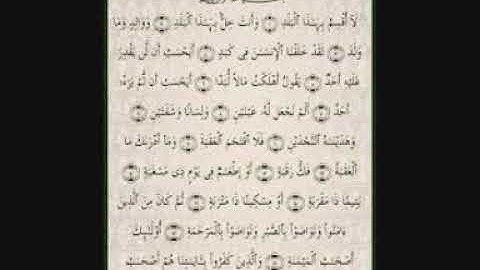 لَآ أُقْسِمُ بِهَٰذَا ٱلْبَلَدِ ۝ وَأَنتَ حِلٌّۢ بِهَٰذَا ٱلْبَلَدِ ۝ وَوَالِدٍ وَمَا
وَلَدَ ۝ لَقَدْ خَلَقْنَا ٱلْإِنسَٰنَ فِى كَبَدٍ ۝ أَيَحْسَبُ أَن لَّن يَقْدِرَ
عَلَيْهِ أَحَدٌ ۝ يَقُولُ أَهْلَكْتُ مَالًا لُّبَدًا ۝ أَيَحْسَبُ أَن لَّمْ يَرَهُۥٓ
أَحَدٌ ۝ أَلَمْ نَجْعَل لَّهُۥ عَيْنَيْنِ ۝ وَلِسَانًا وَشَفَتَيْنِ ۝
وَهَدَيْنَٰهُ ٱلنَّجْدَيْنِ ۝ فَلَا ٱقْتَحَمَ ٱلْعَقَبَةَ ۝ وَمَآ أَدْرَىٰكَ مَا
ٱلْعَقَبَةُ ۝ فَكُّ رَقَبَةٍ ۝ أَوْ إِطْعَٰمٌ فِى يَوْمٍ ذِى مَسْغَبَةٍ ۝
يَتِيمًا ذَا مَقْرَبَةٍ ۝ أَوْ مِسْكِينًا ذَا مَتْرَبَةٍ ۝ ثُمَّ كَانَ مِنَ ٱلَّذِينَ
ءَامَنُوا۟ وَتَوَاصَوْا۟ بِٱلصَّبْرِ وَتَوَاصَوْا۟ بِٱلْمَرْحَمَةِ ۝ أُو۟لَٰٓئِكَ
أَصْحَٰبُ ٱلْمَيْمَنَةِ ۝ وَٱلَّذِينَ كَفَرُوا۟ بِـَٔايَٰتِنَا هُمْ أَصْحَٰبُ